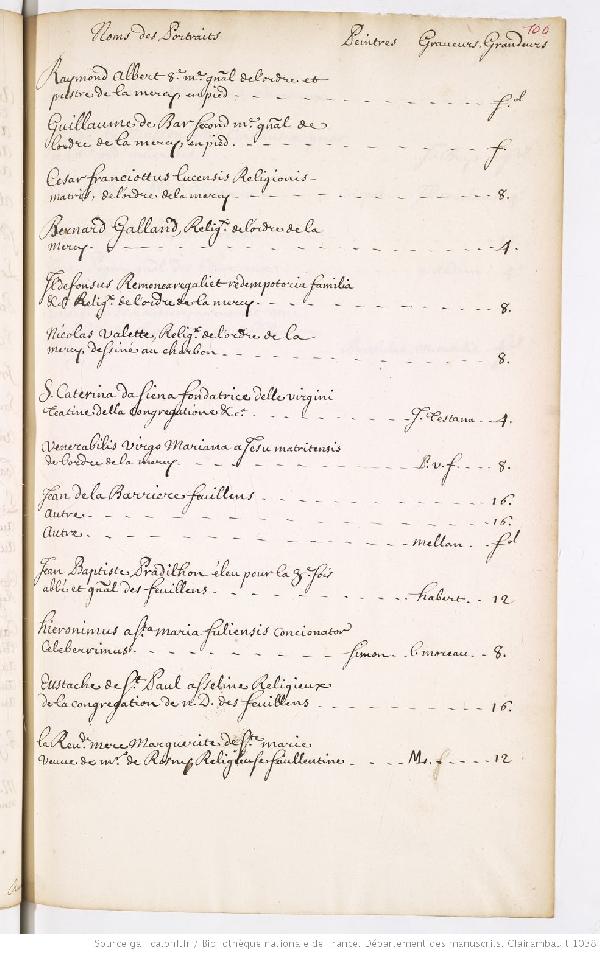 100
Noms des Portraits Peintres Graveurs Grandeurs
Raymond Albert 8.e m.e gnal de lordre et
prestre de la mercy en pied - - - f.ol
Guillaume de Bar second m.e gnal de
lordre de la mercy en pied. - - - f.
Cesar franciottus lucensis Religionis -
matris, de lordre de la mercy - - - 8.
Bernard Galland, Relig.x de lordre de la
mercy. - - - 4.
Ildefonsus Remonea regali et redemptoria familia
&c. Relig.x de lordre de la mercy - - - 8.
Nicolas Valette, Relig.x de lordre de la
mercy dessiné au charbon - - - 8.
S. Caterina da Siena fondatrice delle virgini
teatine della congregatione &c.a J. Testana - - 4.
Venerabilis Virgo Mariana a Jesu matritensis
de lordre de la mercy. - - - P. v. f. - - - 8.
Jean de la Barriere feuillens - - - 16.
Autre - - - 16.
Autre - - - mellan. - f.ol
Jean Baptiste Pradilhon éleu pour la 3.e fois
abbé et gnal des feuillens - - - habert. - - 12
hieronimus a s.ta maria fuliensis concionator
Celeberrimus - - - simon. - C. moreau. - - 8.
Eustache de S.t Paul asseline Religieux
de la congregation de n. D. des feuillens - - - 16.
la Reu.de mere Marguerite de S.te marie
veuue de m.r de Rosny Religieuse feuillentine - - - M. f - - - 12
Source gallica.bnf.fr / Bibliothèque nationale de France. Département des manuscrits. Clairambault 1038